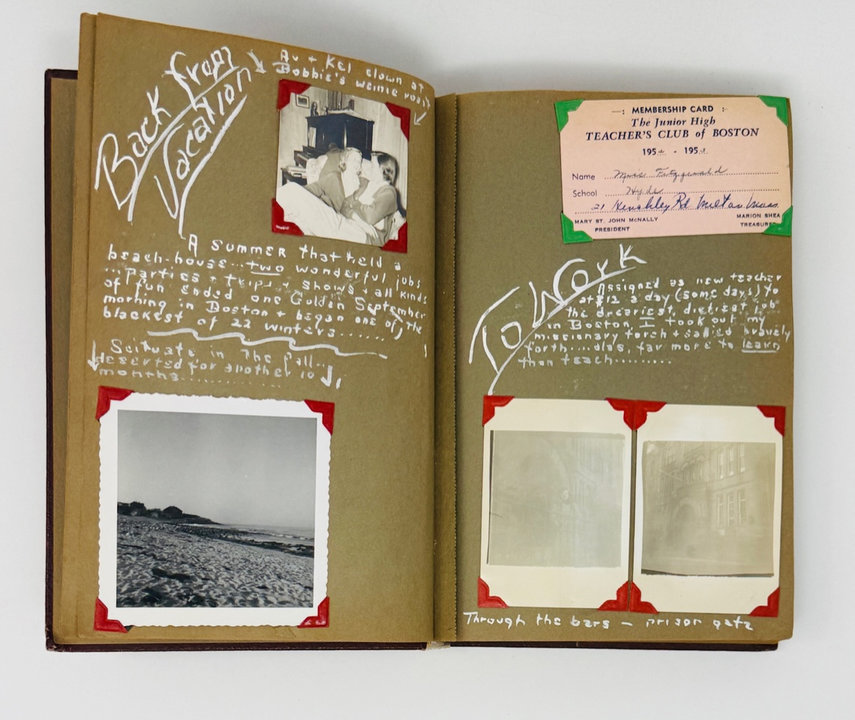 Back from
Vacation
Av + Kel clown at
Bobbie's weinie roast
A summer that held a
beach-house.. two wonderful jobs
... parties + trips + shows + all kinds
of fun ended one Golden September
morning in Boston + began one of the
blackest of 22 winters......
Scituate in the Fall..
deserted for another 10
months............
—: MEMBERSHIP CARD :—
The Junior High
TEACHER'S CLUB of BOSTON
195 - 195
Name Miss Fitzgerald
School Hyde
21 Hinckley Rd Milton Mass
MARY ST. JOHN McNALLY
PRESIDENT
MARION SHEA
TREASURER
To Work
Assigned as new teacher
at $12 a day (some days) to
the dreariest, dirtiest job
in Boston, I took out my
missionary torch + sallied bravely
forth....alas, far more to learn
than teach.........
Through the bars — prison gate